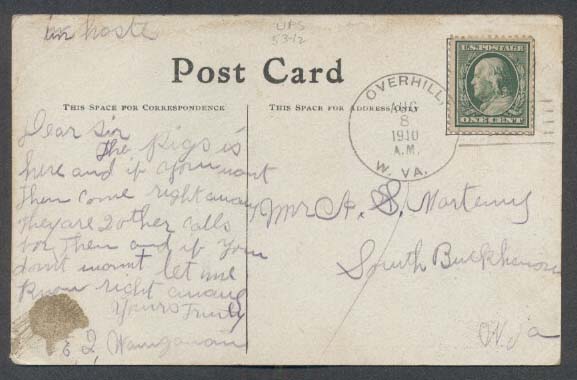 in haste
UPS
53-12
Post Card
THIS SPACE FOR CORRESPONDENCE
THIS SPACE FOR ADDRESS ONLY
U.S. POSTAGE
ONE CENT
OVERHILL,
AUG
8
1910
A.M.
W. VA.
Dear Sir
The pigs is
here and if you want
Them come right away
They are 2 other calls
for Them and if you
don't want let me
know right away
Yours Truly
Mr A. S.
South Buckhannon
W. Va